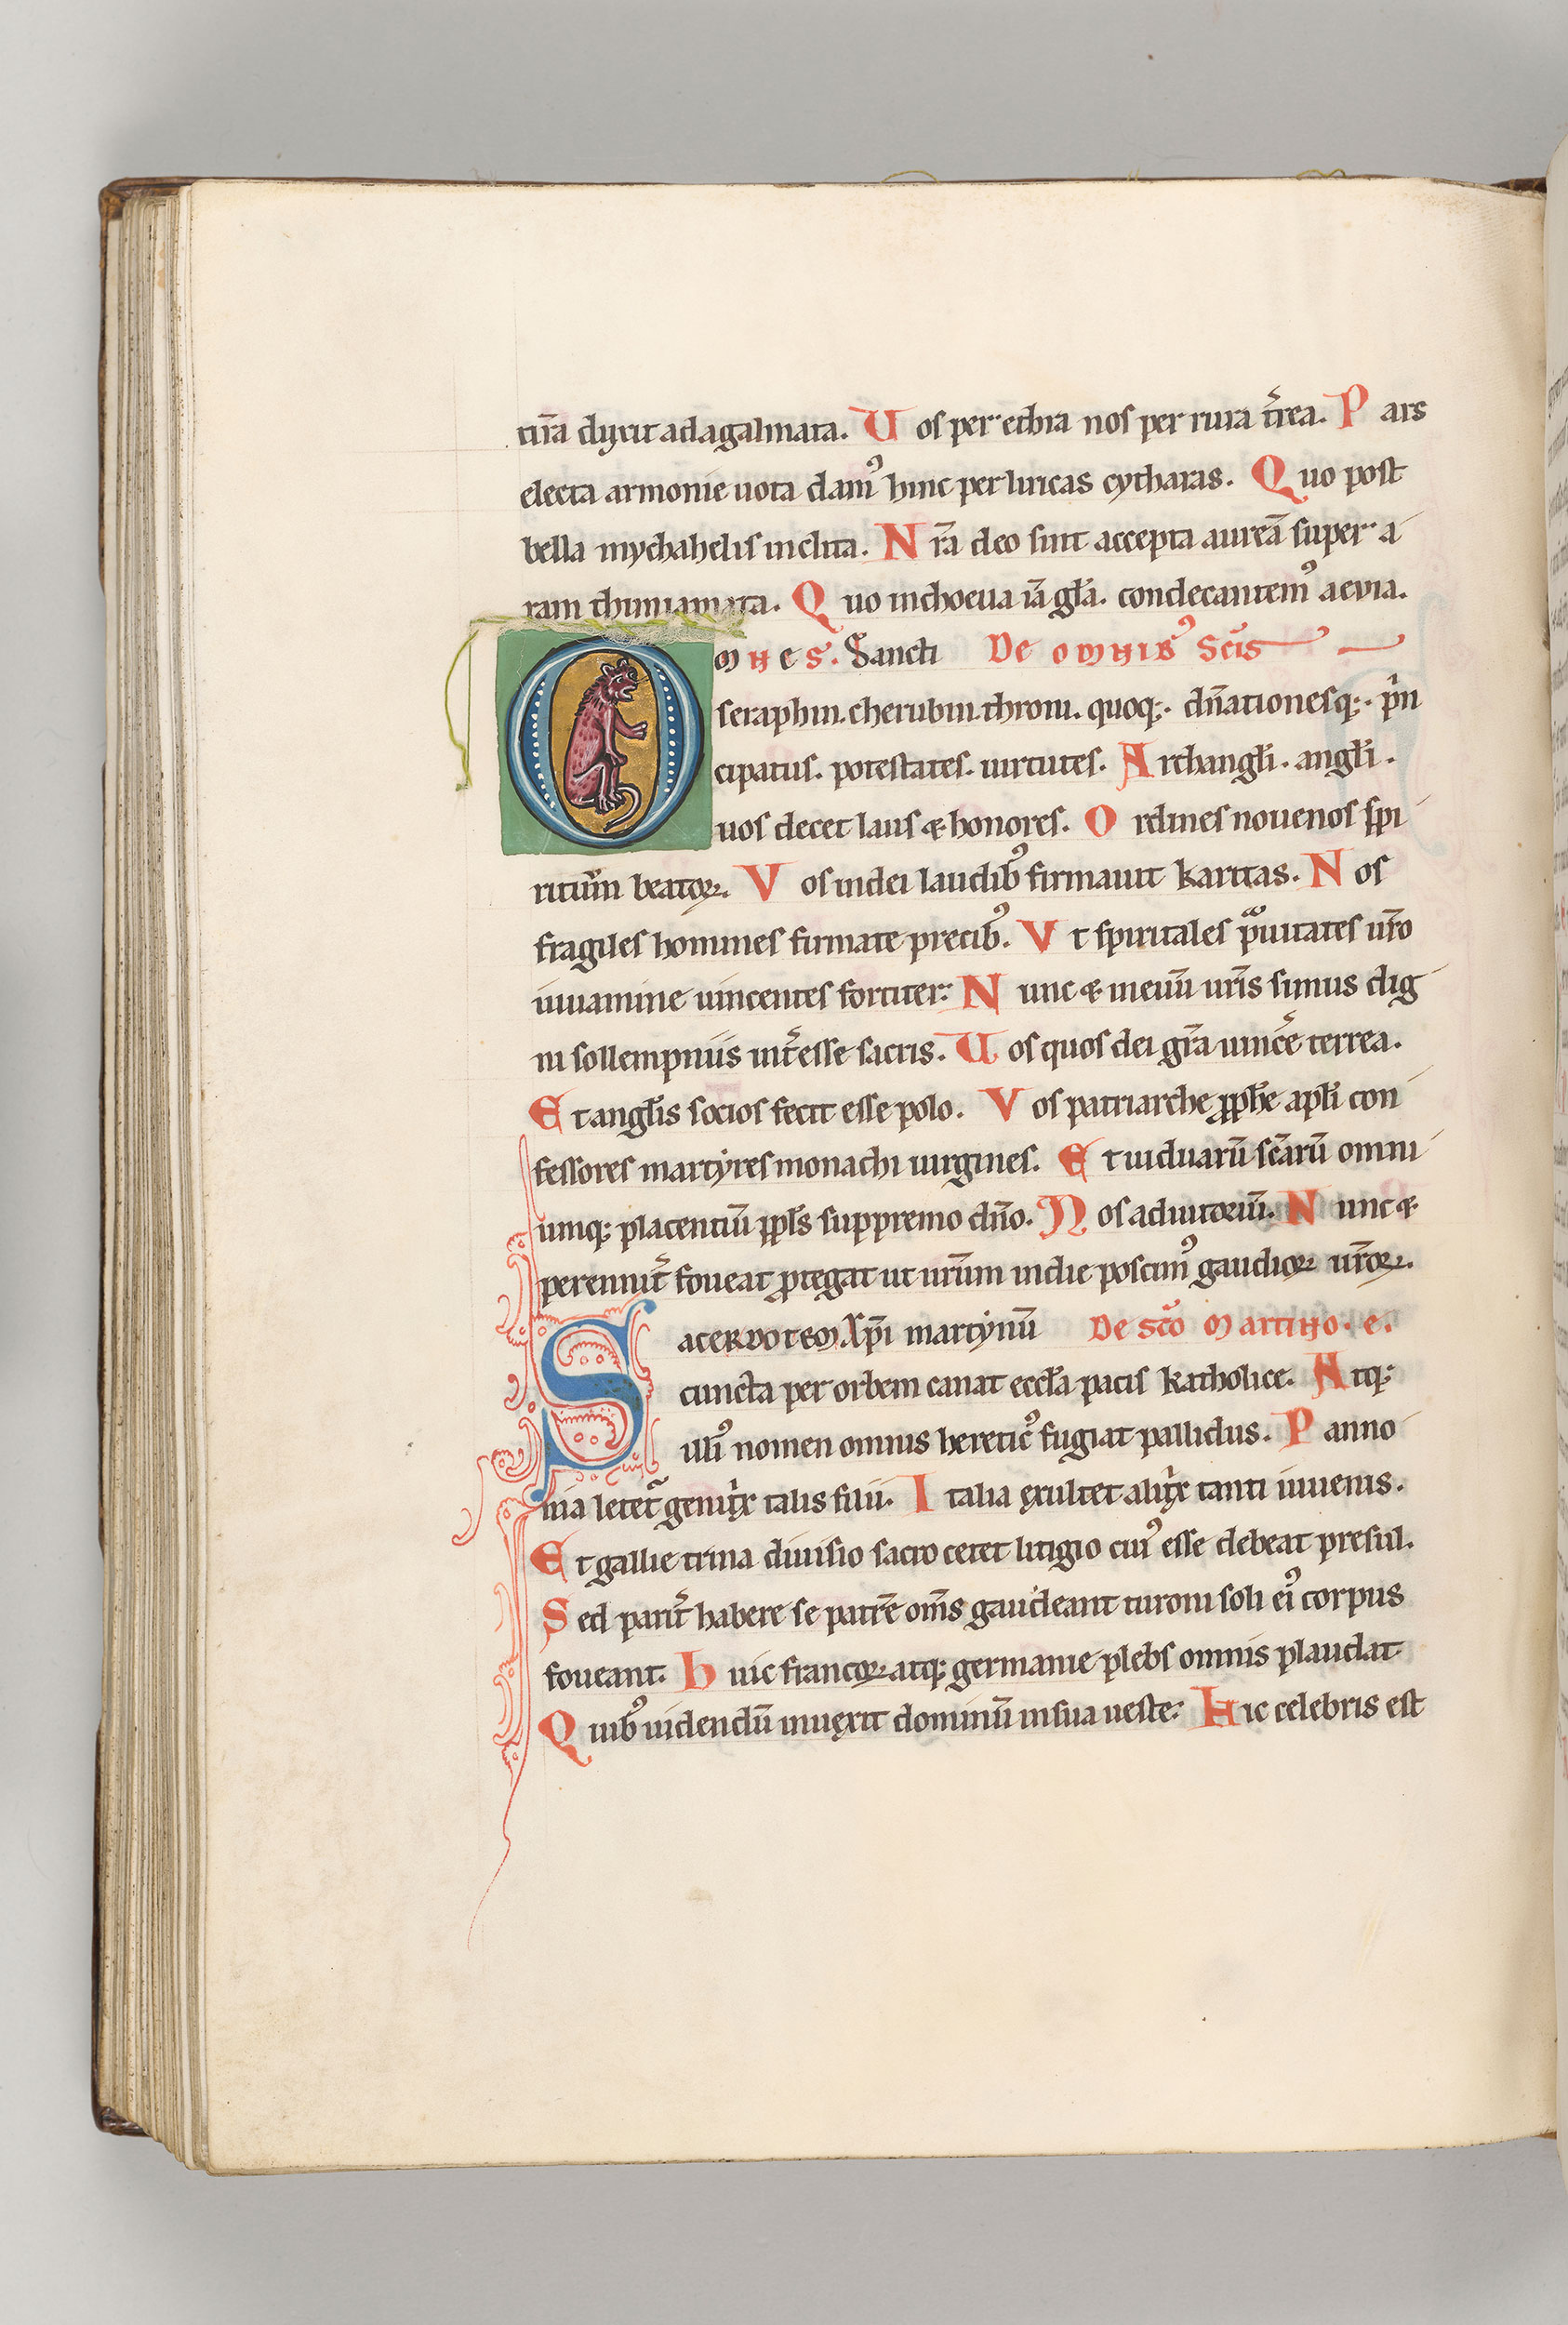 tura dyxit adagalmata. Vos per ethra nos per rura t̄rea. Pars
electa armonie uota dam᾽ hinc per liricas cytharas. Quo post
bella mychahelis inclita. Nr̄a deo sint accepta aureā super a
ram thimiamata. Quo in choeua iā gl̄a. condecantem᾽ aevia.
Omnes. Sancti De omnib᾽ Sc̄is
seraphin. cherubin. throni. quoq;. dn̄ationesq;. p̄in
cipatus. potestates. uirtutes. Archangl̄i. angl̄i.
uos decet laus & honores. Ordines nouenos spi
rituūm beatoꝝ. Vos in dei laudib᾽ firmauit karitas. Nos
fragiles homines firmate precib᾽. Vt spiritales prauitates ur̄o
iuuamine uincentes fortiter: Nunc & in euū ur̄is simus dig
ni sollempniis int̄esse sacris. Vos quos dei gr̄a uinc̄e terrea.
Et angl̄is socios fecit esse polo. Vos patriarche ꝓph̄e apl̄i con
fessores martyres monachi uirgines. Et uiduarū sc̄arū omni
umq; placentiū ꝓpl̄s suppremo dn̄o. Nos adiutoriū. Nunc &
perennit̄ foueat ꝓtegat ut ur̄um in die poscim᾽ gaudioꝝ ur̄oꝝ.
Sacerdotem Xp̄i martynū De sc̄o Martino. e.
cuncta per orbem canat eccl̄a pacis katholice. Atq;
illi᾽ nomen omnis heretic᾽ fugiat pallidus. Panno
nia letet̄ genit̄x talis filii. Italia exultet alit̄x tanti iuuenis.
Et gallie trina diuisio sacro cetet litigio cui᾽ esse debeat presul.
Sed parit̄ habere se patrē om̄s gaudeant turoni soli ei᾽ corpus
foueant. huic francoꝝ atq; germanie plebs omnis plaudat.
Quib᾽ uidendū inuexit dominū in sua ueste: Hic celebris est